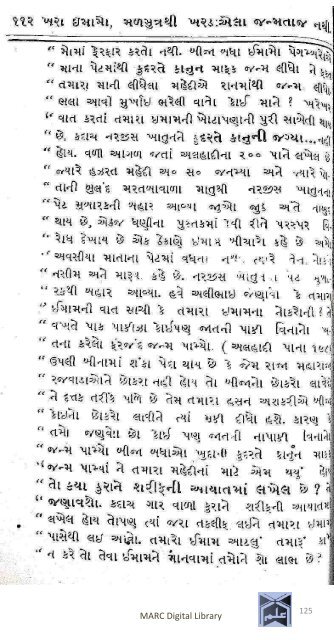 ૧૧૨ ખરા ઈમામો, મળમુત્રથી ખરડાએલા જન્મતાજ નથી.
“ મોમાં ફેરફાર કરતો નથી. બીજા બધા ઈમામો પેગમ્બરોએ
“ માના પેટમાંથી કુદરતે કાનુન માફક જન્મ લીધો ને ફક્ત
“ તમારા માની લીધેલા મહેદીએ રાનમાંથી જન્મ લીધો.
“ ભલા આવી મુર્ખાઈ ભરેલી વાતો કોઈ માને ? ખરેખર
“ વાત કરતાં તમારા ઇમામની ખોટાપણાની પુરી સાબેતી થાય
“ છે, કદાચ નરજીસ ખાતુનને કુદરતે કાનુની જગ્યા...નહી
“ હોય. વળી આગળ જતાં અલહાદીના ૨૦૦ પાને લખેલ છે
“ જ્યારે હઝરત મહેદી અ૦ સ૦ જનમ્યા અને જ્યારે
“ તાની બુલંદ મરતબાવાળા માતુશ્રી નરજીસ ખાતુનના
“ પેટ મુબારકની બહાર આવ્યા જુઓ જુઠ અંતે
“ થાય છે, એકજ ધણીના પુસ્તકમાં કેવી રીતે પરસ્પર વિ
“ રોધ દેખાય છે એક ઠેકાણે ઈમામ બીચારો કહે છે અમે
“ અવસીયા માતાના પેટમાં વધતા નથી ત્યારે તેના નોકરો
“ નસીમ અને મારૂયા કહે છે. નરજીસ ખાતુનના પેટ મુબા
“ રકથી બહાર આવ્યા. હવે અલીભાઈ જણાવો કે તમારા
“ ઈમામની વાત સાચી કે તમારા ઇમામના નોકરોની ? તે
“ વખતે પાક પાકીઝા કોઈપણ જાતની પાકી વિનાનો ખ
“ તના કરેલો ફરજંદ જન્મ પામ્યો. ( અલહાદી પાના ૧૯૮)
“ ઉપલી બીનામાં શંકા પેદા થાય છે કે જેમ રાજા મહારાજા
“ રજવાડાઓને છોકરા નહી હોય તો બીજાનો છોકરો લાવે
“ ને દત્તક તરીકે પળે છે તેમ તમારા હસન અશકરીએ બીજા
“ કોઈનો છોકરો લાવીને ત્યાં મુકી દીધો હશે. કારણ કે
“ તમો જણાવો છો કોઈ પણ જાતની નાપાકી વિનાનો
“ જન્મ પામ્યો બીજા બધાઓ ખુદાની કુદરતે કાનુન માફક
“ જન્મ પામ્યાં ને તમારા મહેદીનાં માટે એમ થયું હોય
“ તો કયા કુરાને શરીફની આયાતમાં લખેલ છે ? તે
“ જણાવશો. કદાચ ગાર વાળા કુરાને શરીફની આયાતમાં
“ લખેલ હોય તોપણ ત્યાં જરા તકલીફ લઈને તમારા ઇમામ
“ પાસેથી લઈ આવો. તમારો ઈમામ આટલું તમારૂં કામ
“ ન કરે તો તેવા ઈમામને માનવામાં તમોને શો લાભ છે ?
MARC Digital Library
125